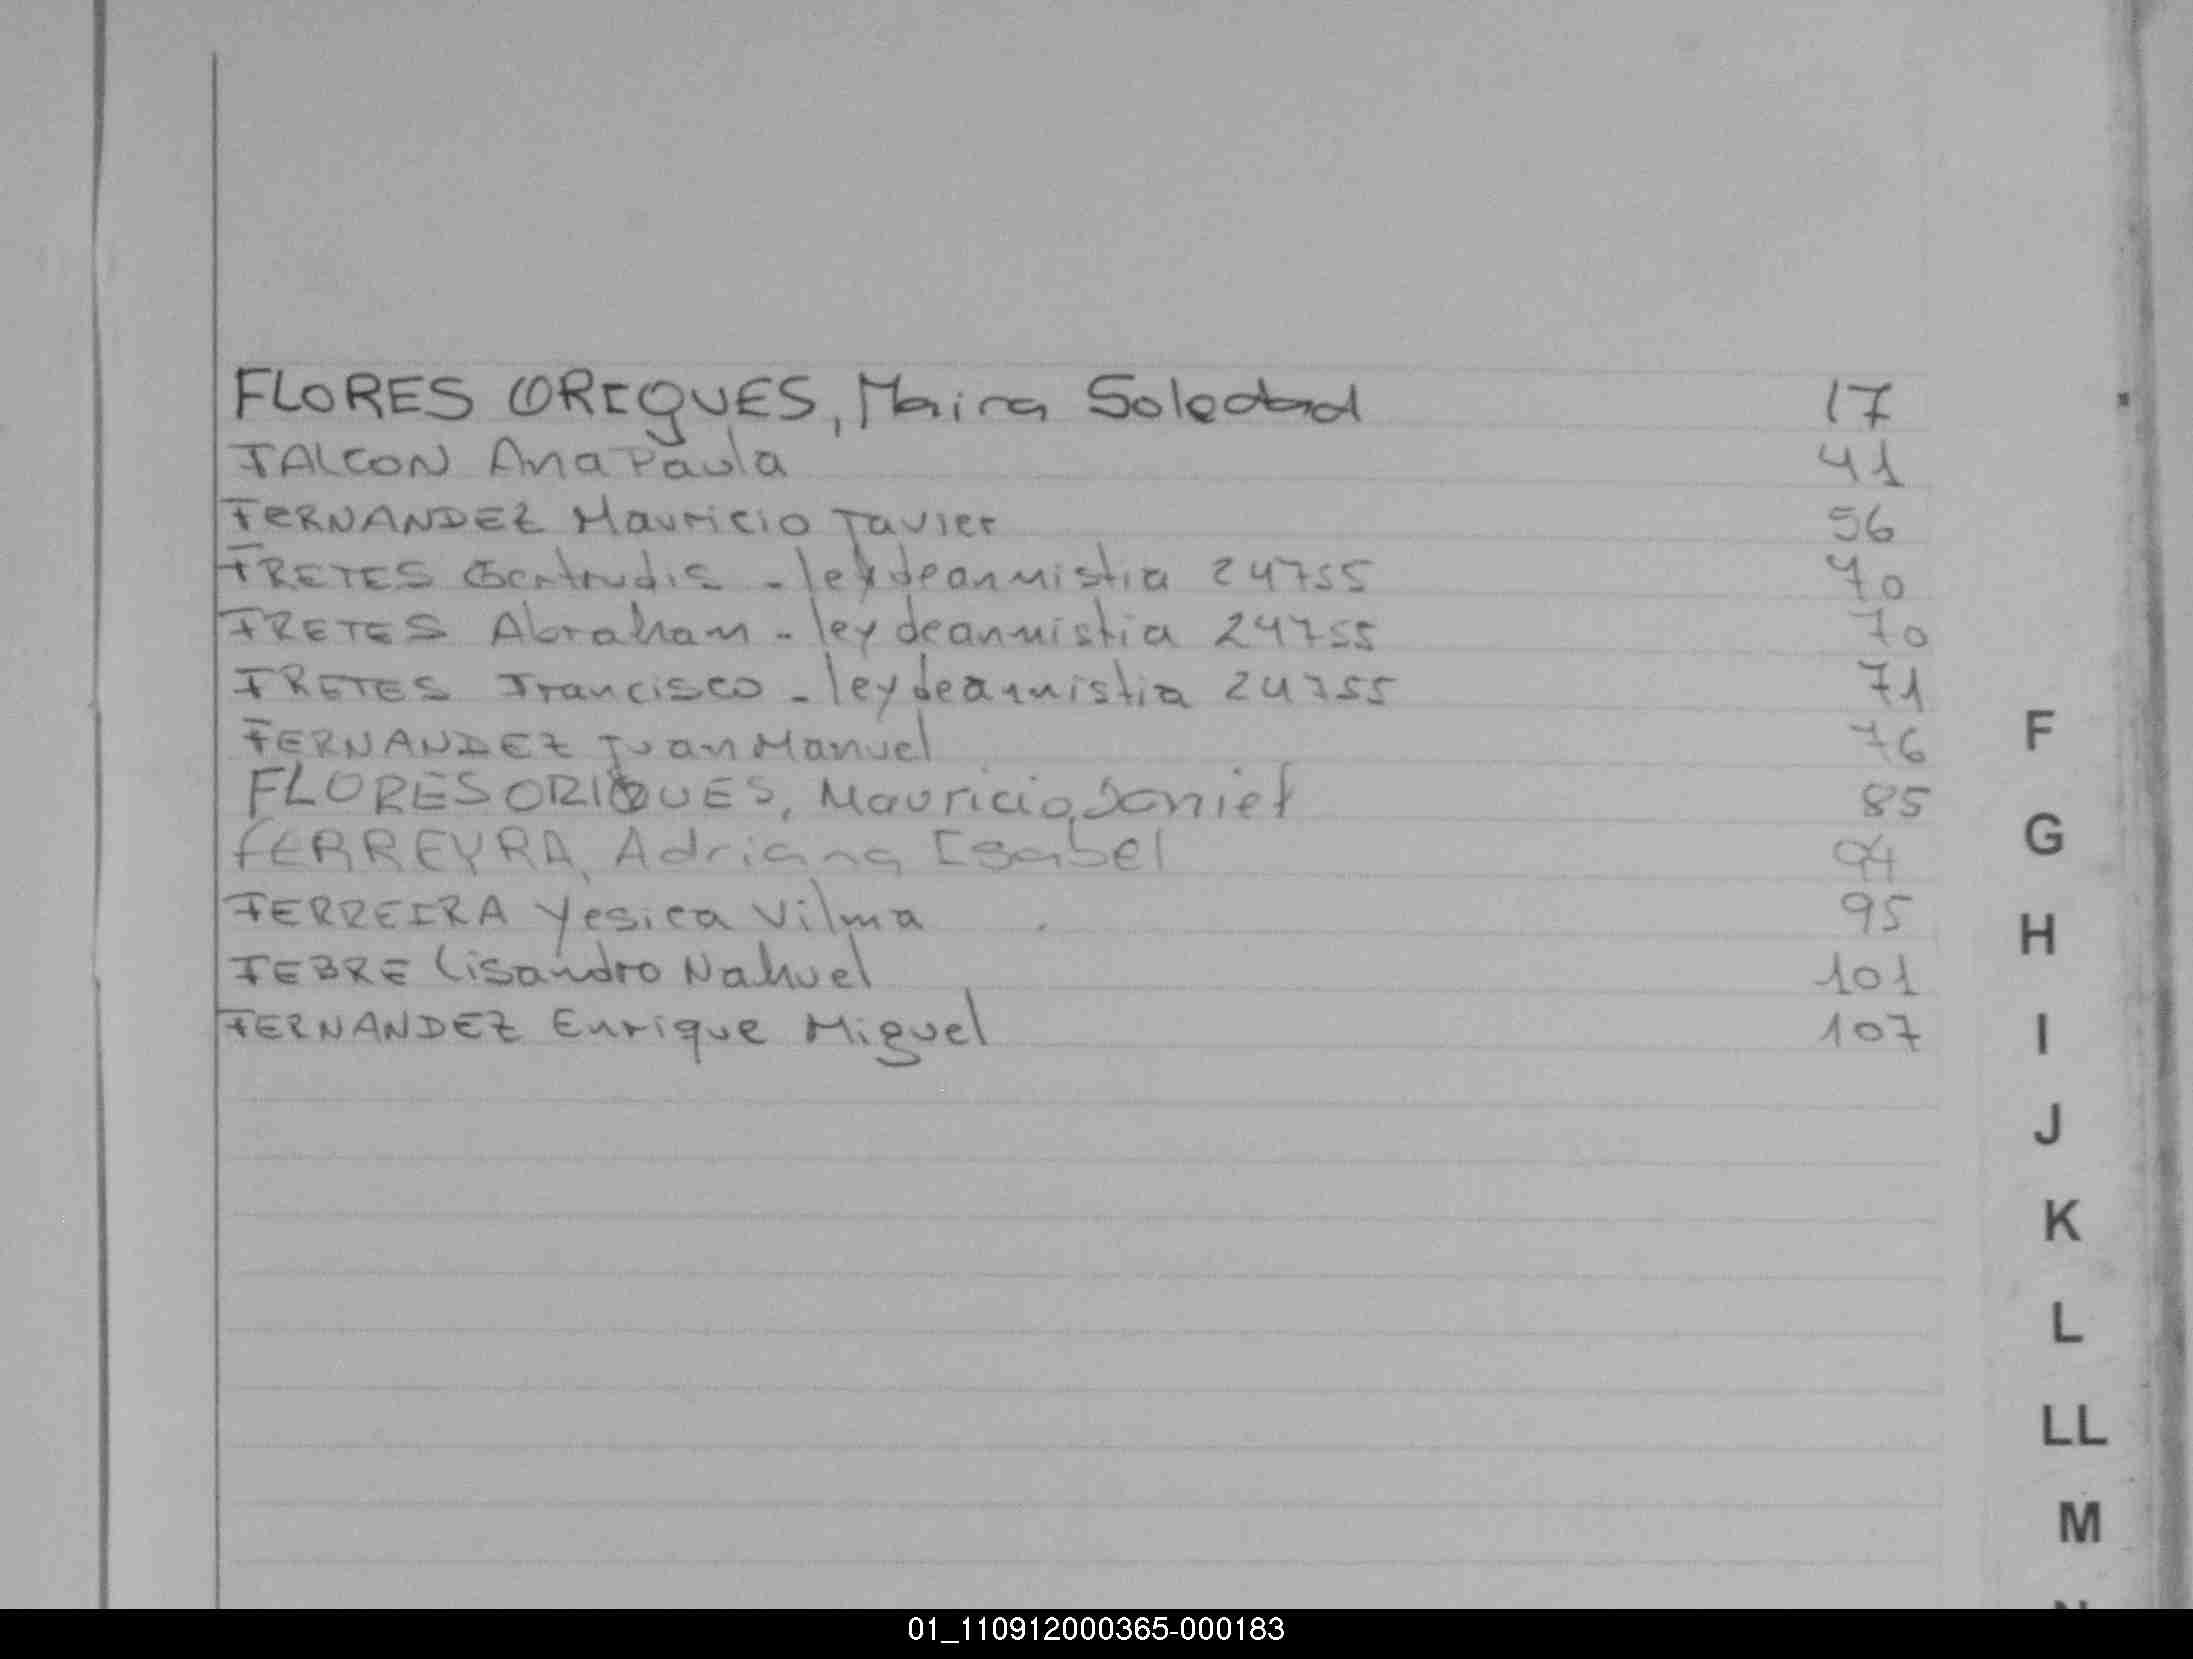 FLORES ORIQUES, Maira Soledad 17
FALCON Ana Paula 41
FERNANDEZ Mauricio Javier 56
FRETES Gertrudis - ley de anmistia 24755 70
FRETES Abraham - ley de anmistia 24755 70
FRETES Francisco - ley de anmistia 24755 71
FERNANDEZ Juan Manuel 76
FLORES ORIQUES, Mauricio Daniel 85
FERREYRA, Adriana Isabel 94
FERREIRA Yesica Vilma 95
FEBRE Lisandro Nahuel 101
FERNANDEZ Enrique Miguel 107
F
G
H
I
J
K
L
LL
M
01_110912000365-000183